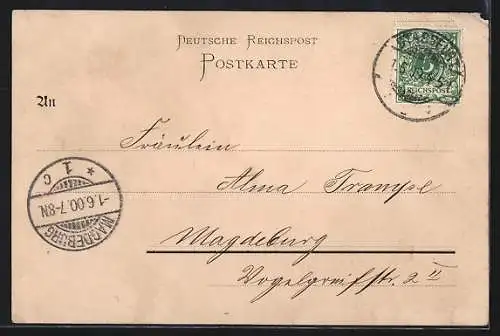 Deutsche Reichspost
Postkarte
REICHSPOST
An
Fräulein
Alma Trampe
Magdeburg
Vogelgreifstr. 2 II
* 1 c
-1.6.00.7-8N.
MAGDEBURG